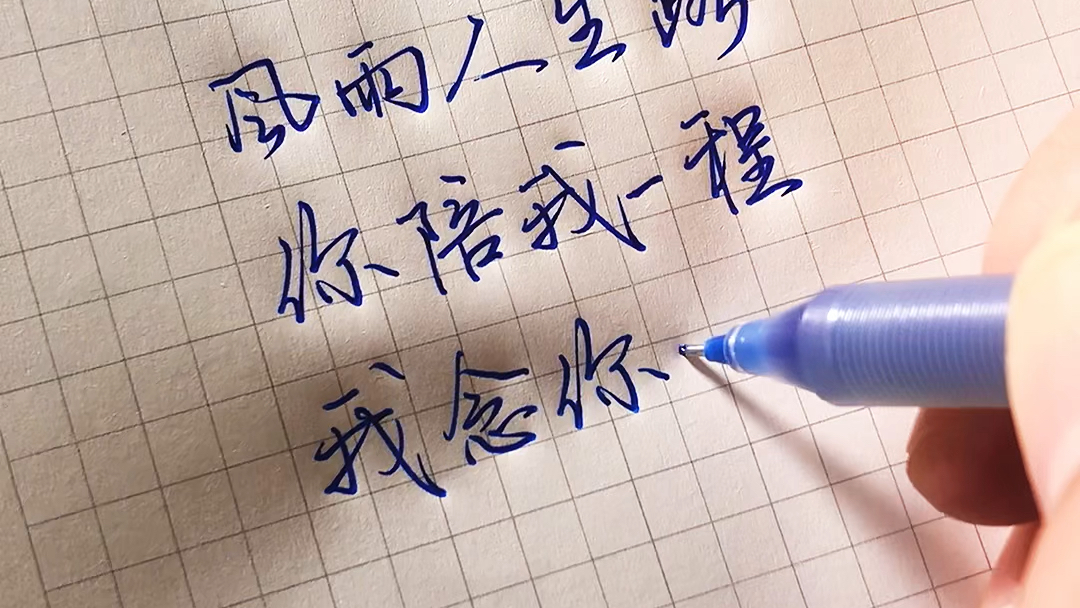 风雨人生路
你陪我一程
我念你